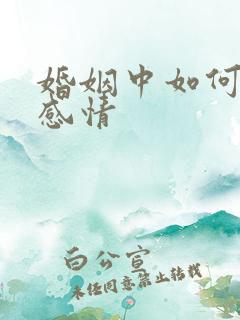 婚姻中如何
感情
白公宣
未经同意禁止转载